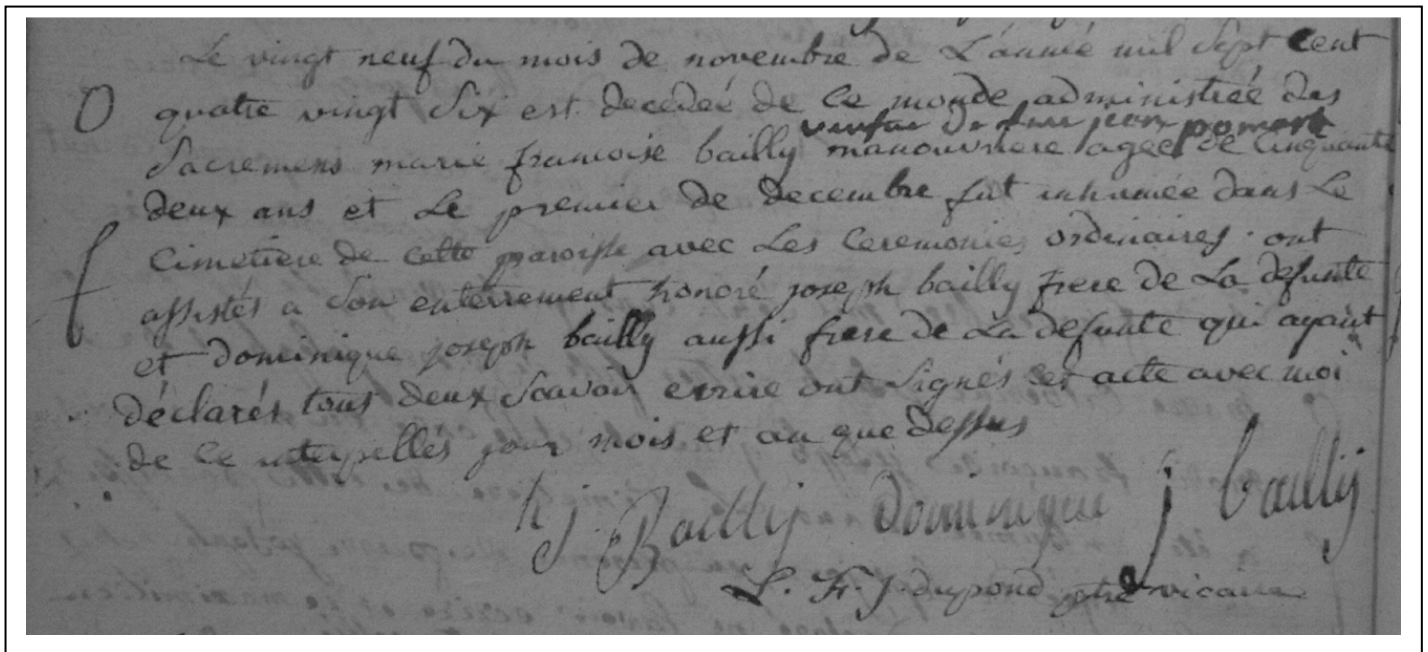 Le vingt neuf du mois de novembre de L'année mil sept Cent
O quatre vingt Six est decedeé de ce monde administreé des
veufue de feu jean
Sacremens marie francoise bailly manouvriere ageé de Cinquante
deux ans et Le premier de decembre fut inhumée dans Le
Cimetiere de cette paroisse avec Les Ceremonies ordinaires. ont
assistés a Son enterrement honoré joseph bailly frere de La defunte
et dominique joseph bailly aussi frere de La defunte qui ayant
déclarés tous deux Scavoir ecrire ont Signés cet acte avec moi
de ce interpellés jour mois et an que dessus
h j. Bailly Dominique j bailly
L. F. J. dupond ptre vicaire